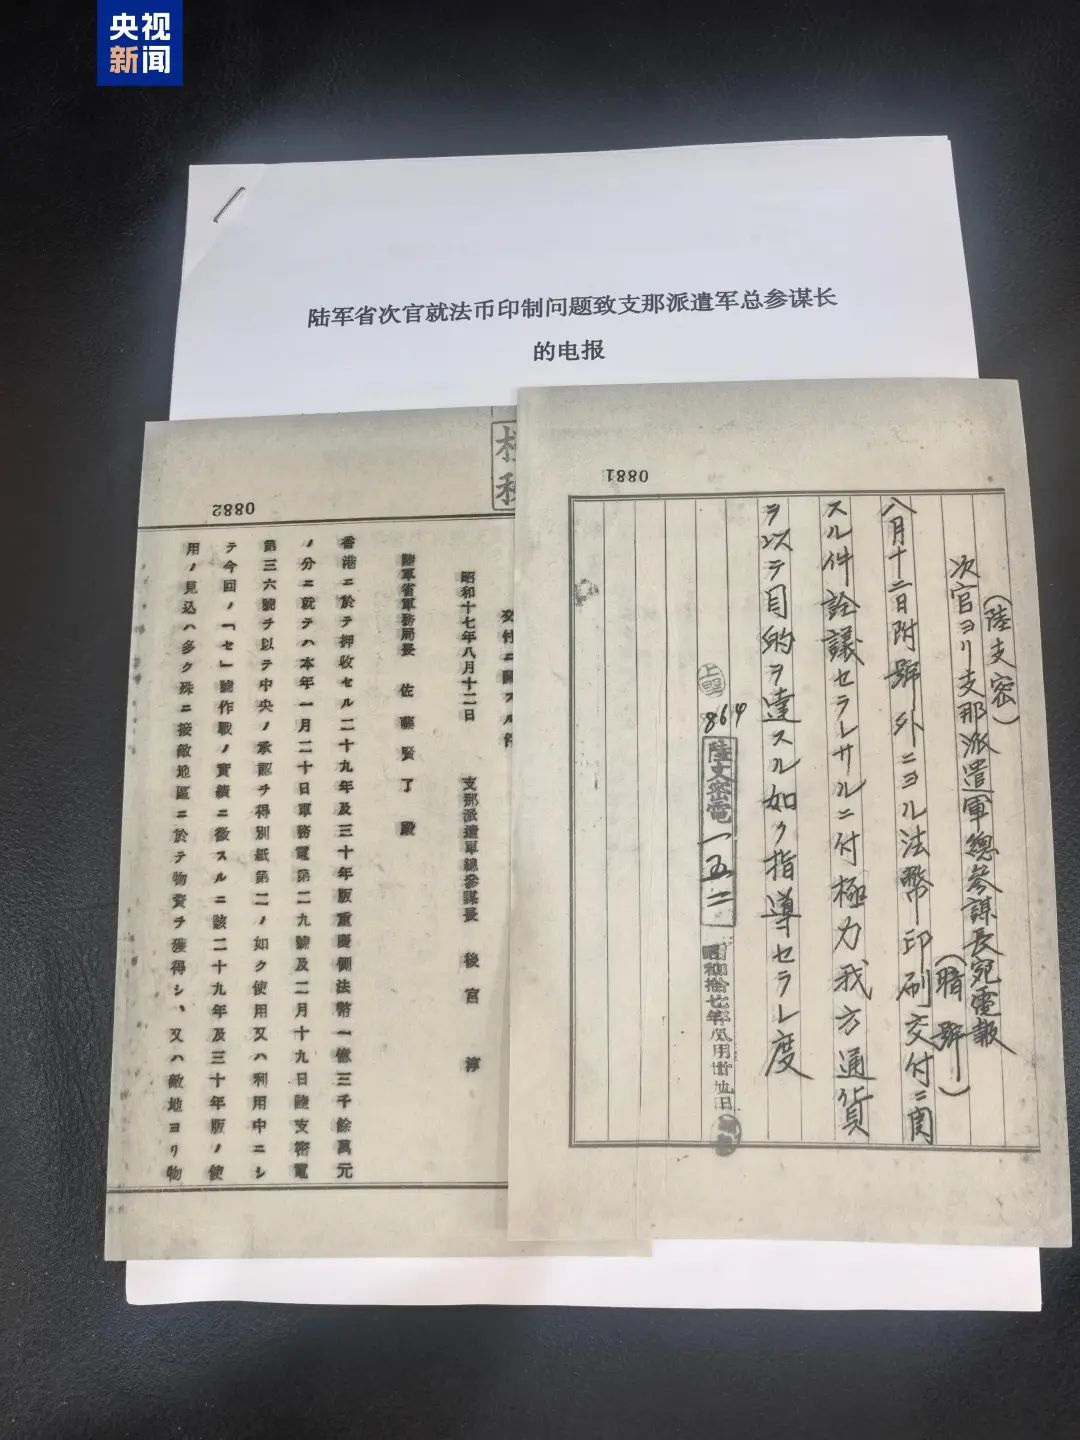 央视
新闻
陆军省次官就法币印制问题致支那派遣军总参谋长
的电报
0881
(陸支密)
次官ヨリ支那派遣軍總参謀長宛電報
(暗號)
八月十二日附號外ニヨル法幣印刷交付ニ関
スル件詮議セラレサルニ付極力我方通貨
ヲ以テ目的ヲ達スル如ク指導セラレ度
864
陸支密電一五二
0882
交付ニ關スル件
昭和十七年八月十二日 支那派遣軍總参謀長 後宮 淳
陸軍省軍務局長 佐藤賢了殿
香港ニ於テ押收セル二十九年及三十年版重慶側法幣一億三千餘萬元
ノ分ニ就テハ本年一月二十日軍務電第二九號及二月十九日陸支密電
第三六號ヲ以テ中央ノ承認ヲ得別紙第二ノ如ク使用又ハ利用中ニシ
テ今回ノ「セ」號作戰ノ實績ニ徴スルニ該二十九年及三十年版ノ使
用ノ見込ハ多ク殊ニ接敵地區ニ於テ物資ヲ獲得シ、又ハ敵地ヨリ物